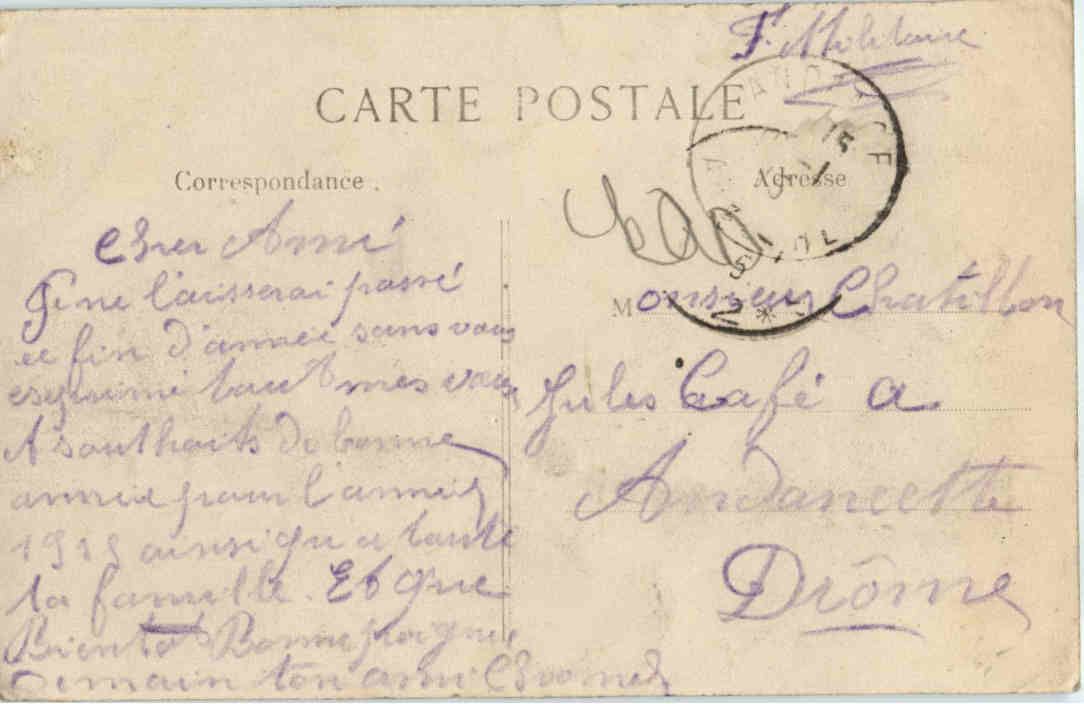 F. Militaire
CARTE POSTALE
Correspondance.
Adresse
Cher Ami
Je ne laisserai passé
ce fin d'année sans vous
exprimé tout mes vœux
et southaits de bonne
année pour l'année
1915 ainsi qu a toute
ta famille. Et que
Bientot Bonne poignée
de main ton ami
Monsieur Chatillon
Jules Café a
Andancette
Drôme